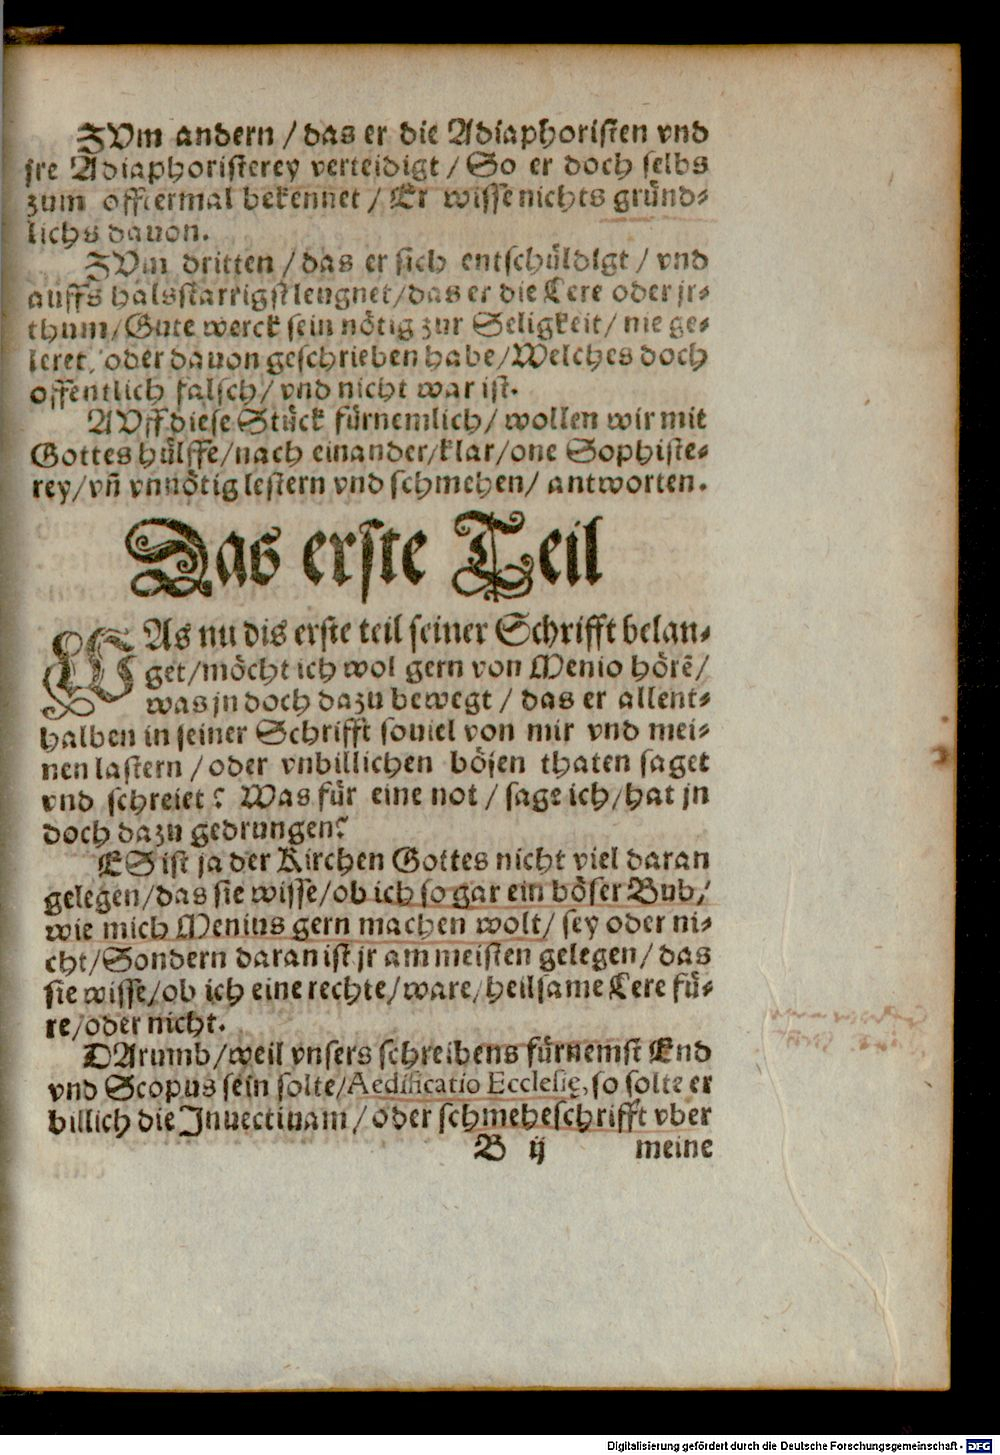 ZVm andern / das er die Adiaphoristen vnd
jre Adiaphoristerey verteidigt / So er doch selbs
zum offtermal bekennet / Er wisse nichts gründ-
lichs dauon.
ZVm dritten / das er sich entschüldigt / vnd
auffs halsstarrigst leugnet / das er die Lere oder jr-
thum / Gute werck sein nötig zur Seligkeit / nie ge-
leret / oder dauon geschrieben habe / Welches doch
offentlich falsch / vnd nicht war ist.
AVff diese Stück fürnemlich / wollen wir mit
Gottes hülffe / nach einander / klar / one Sophiste-
rey / vn̄ vnnötig lestern vnd schmehen / antworten.
Das erste Teil
WAs nu dis erste teil seiner Schrifft belan-
get / möcht ich wol gern von Menio hörē /
was jn doch dazu bewegt / das er allent-
halben in seiner Schrifft souiel von mir vnd mei-
nen lastern / oder vnbillichen bösen thaten saget
vnd schreiet? Was für eine not / sage ich / hat jn
doch dazu gedrungen?
ES ist ja der Kirchen Gottes nicht viel daran
gelegen / das sie wisse / ob ich so gar ein böser Bub /
wie mich Menius gern machen wolt / sey oder ni-
cht / Sondern daran ist jr am meisten gelegen / das
sie wisse / ob ich eine rechte / ware / heilsame Lere fü-
re / oder nicht.
DArumb / weil vnsers schreibens fürnemst End
vnd Scopus sein solte / Aedificatio Ecclesię, so solte er
billich die Inuectiuam / oder schmeheschrifft vber
B ij meine
Digitalisierung gefördert durch die Deutsche Forschungsgemeinschaft - DFG